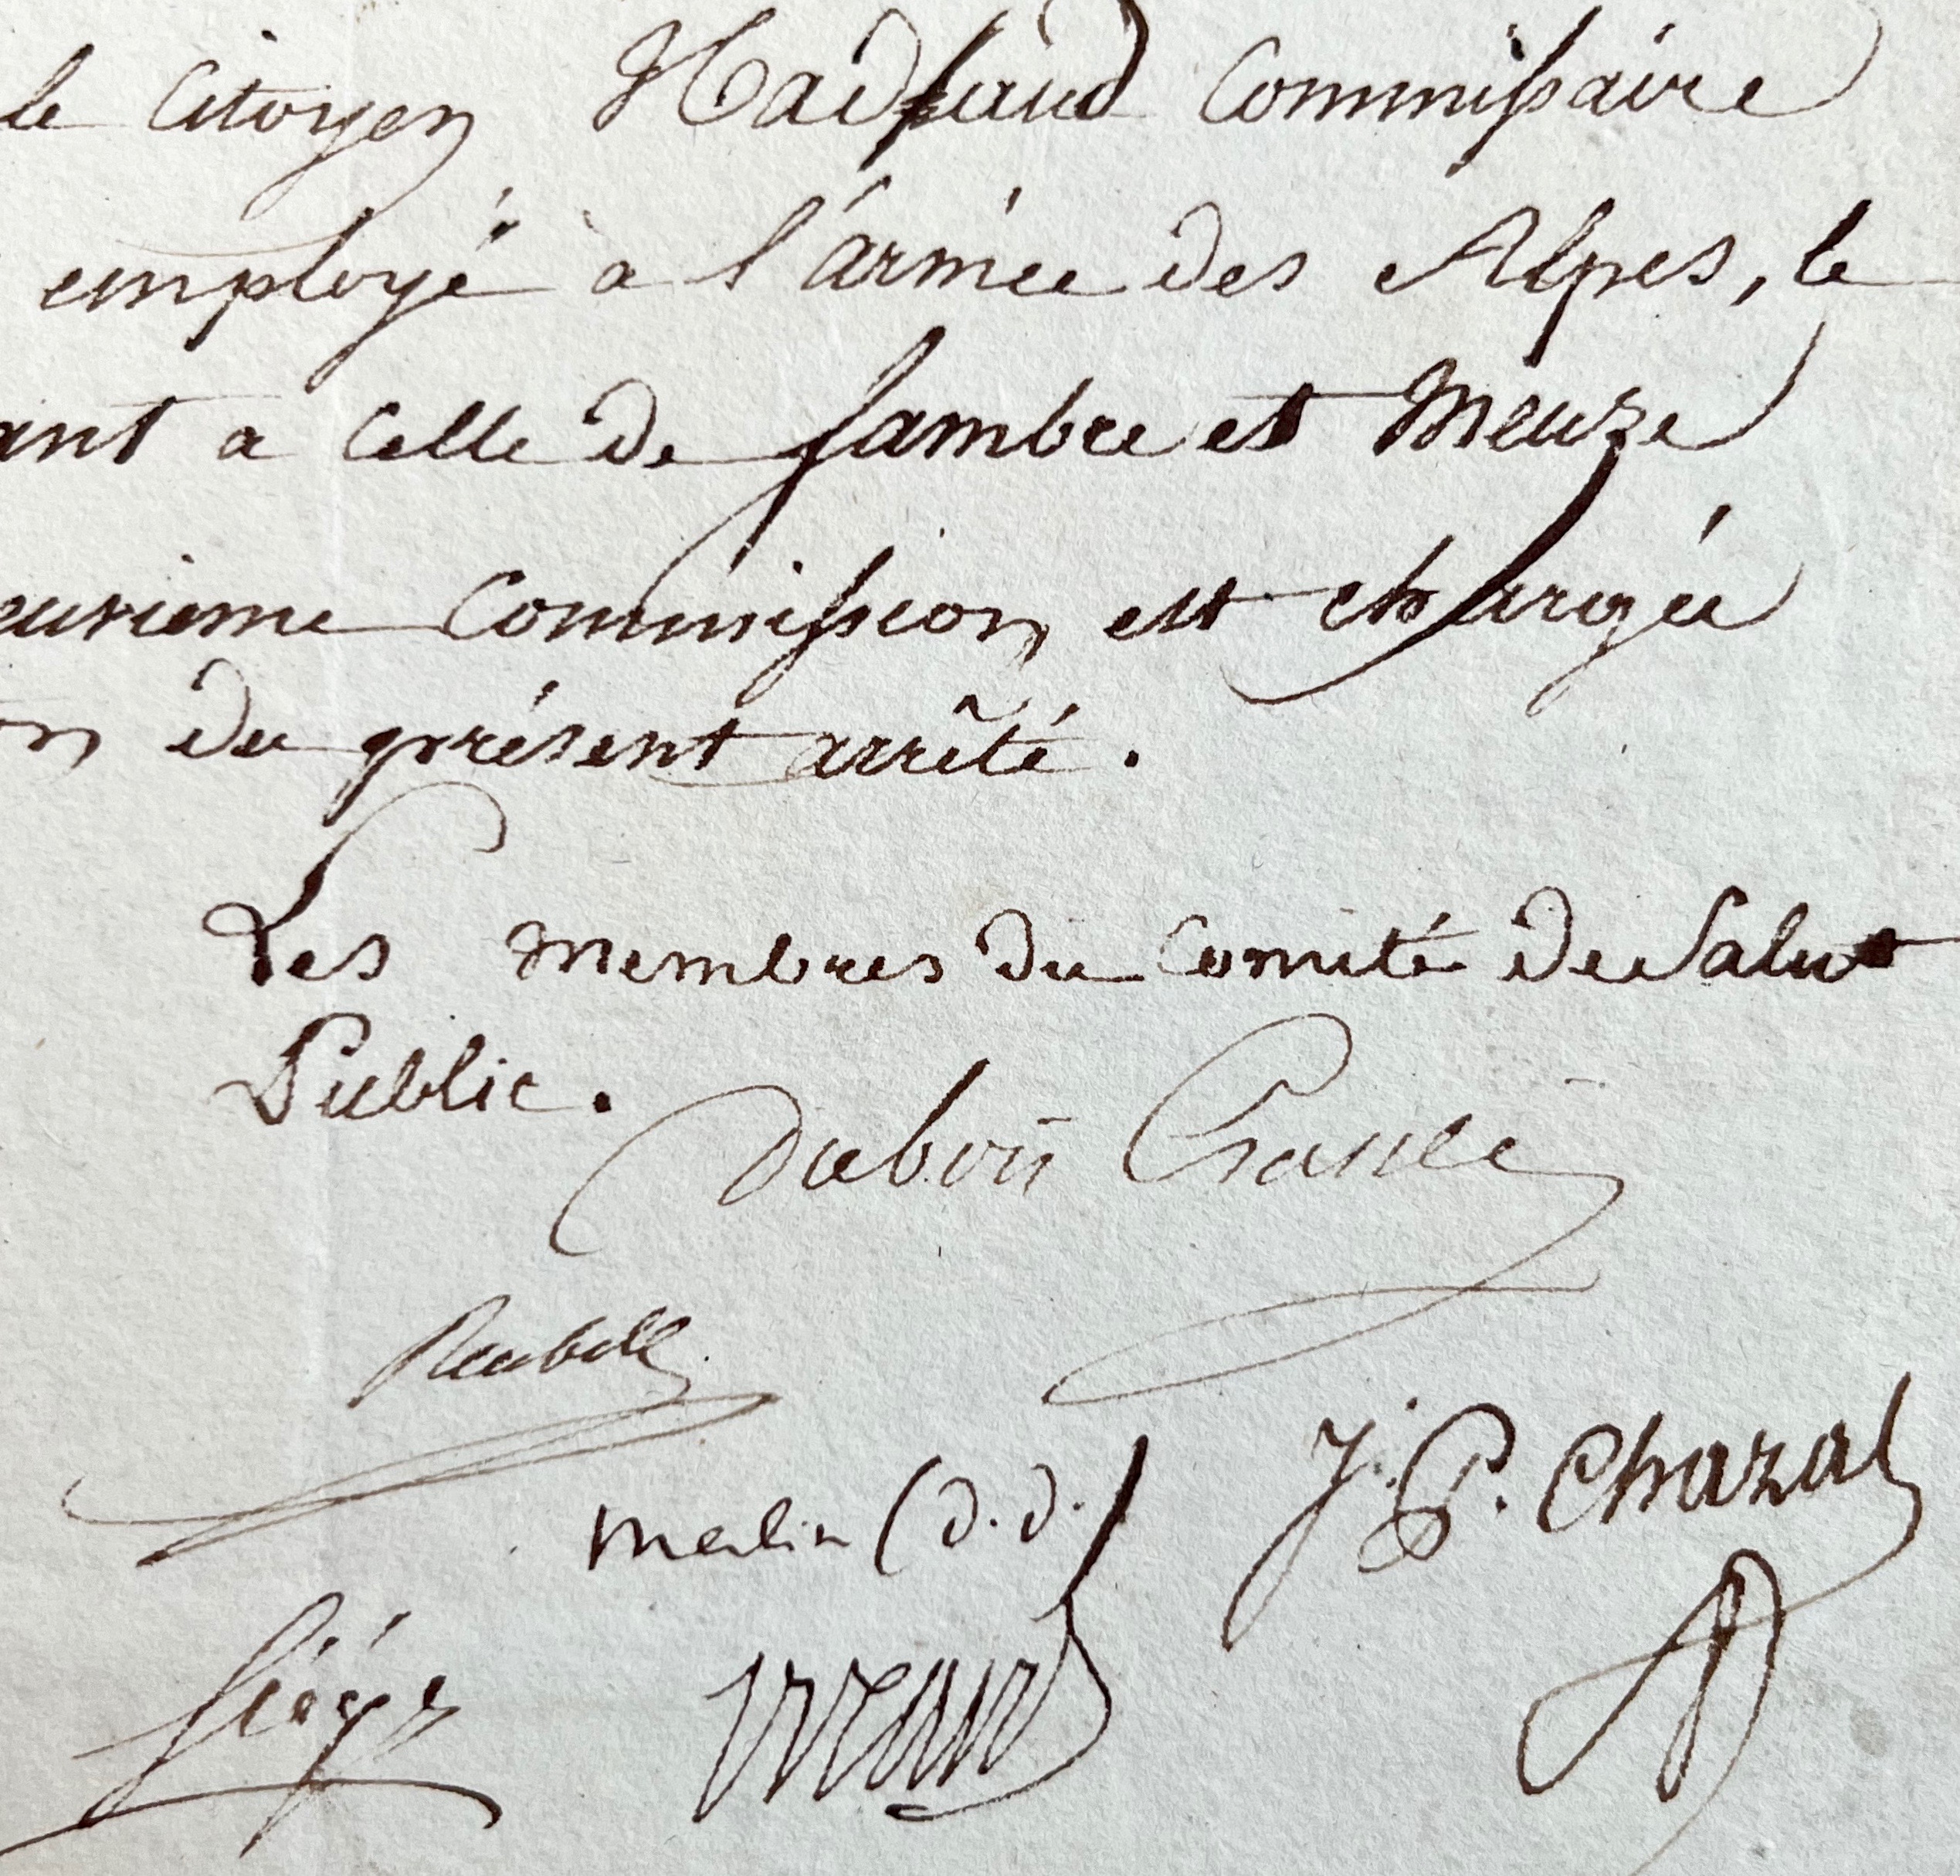 le Citoyen Commissaire
employé à l'armée des Alpes, le
ant a celle de Sambre et Meuze
euxieme Commission est chargée
on du présent arrêté.
Les membres du Comité de Salut
Public.
Dubois Crancé
Reubell
merlin (d.d.)
J. P. Chazal
Sieyes